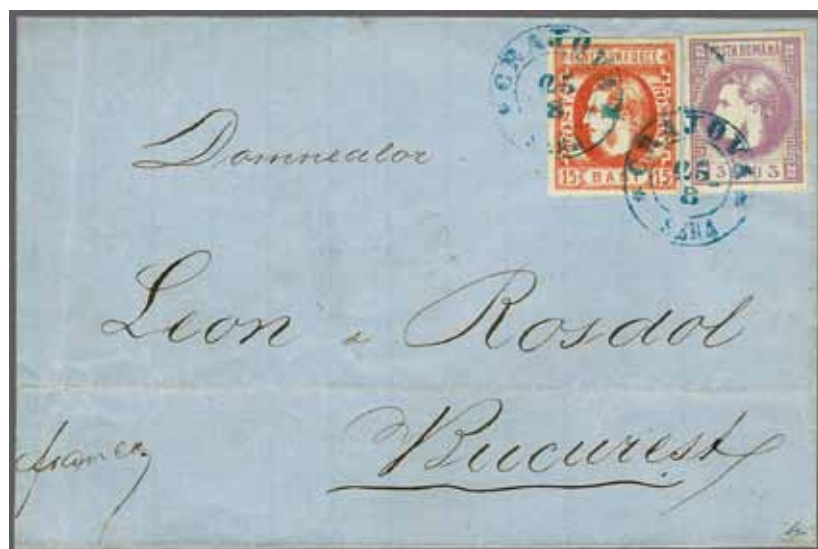 CRAJOV
25
8
POSTA ROMANA
15 BANI 15
3 BANI 3
CRAJOV
25
8
SERA
Domnealor
Leon & Rosdol
franco
Bucuresty